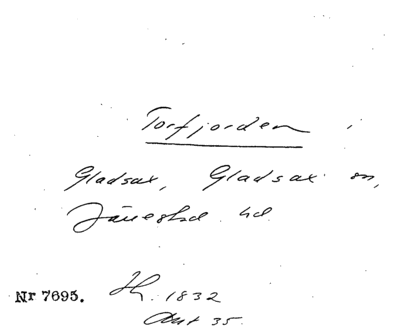 Torfjorden
Gladsax, Gladsax sn,
Järrestad hd.
Nr 7695. 1832
Akt 35.